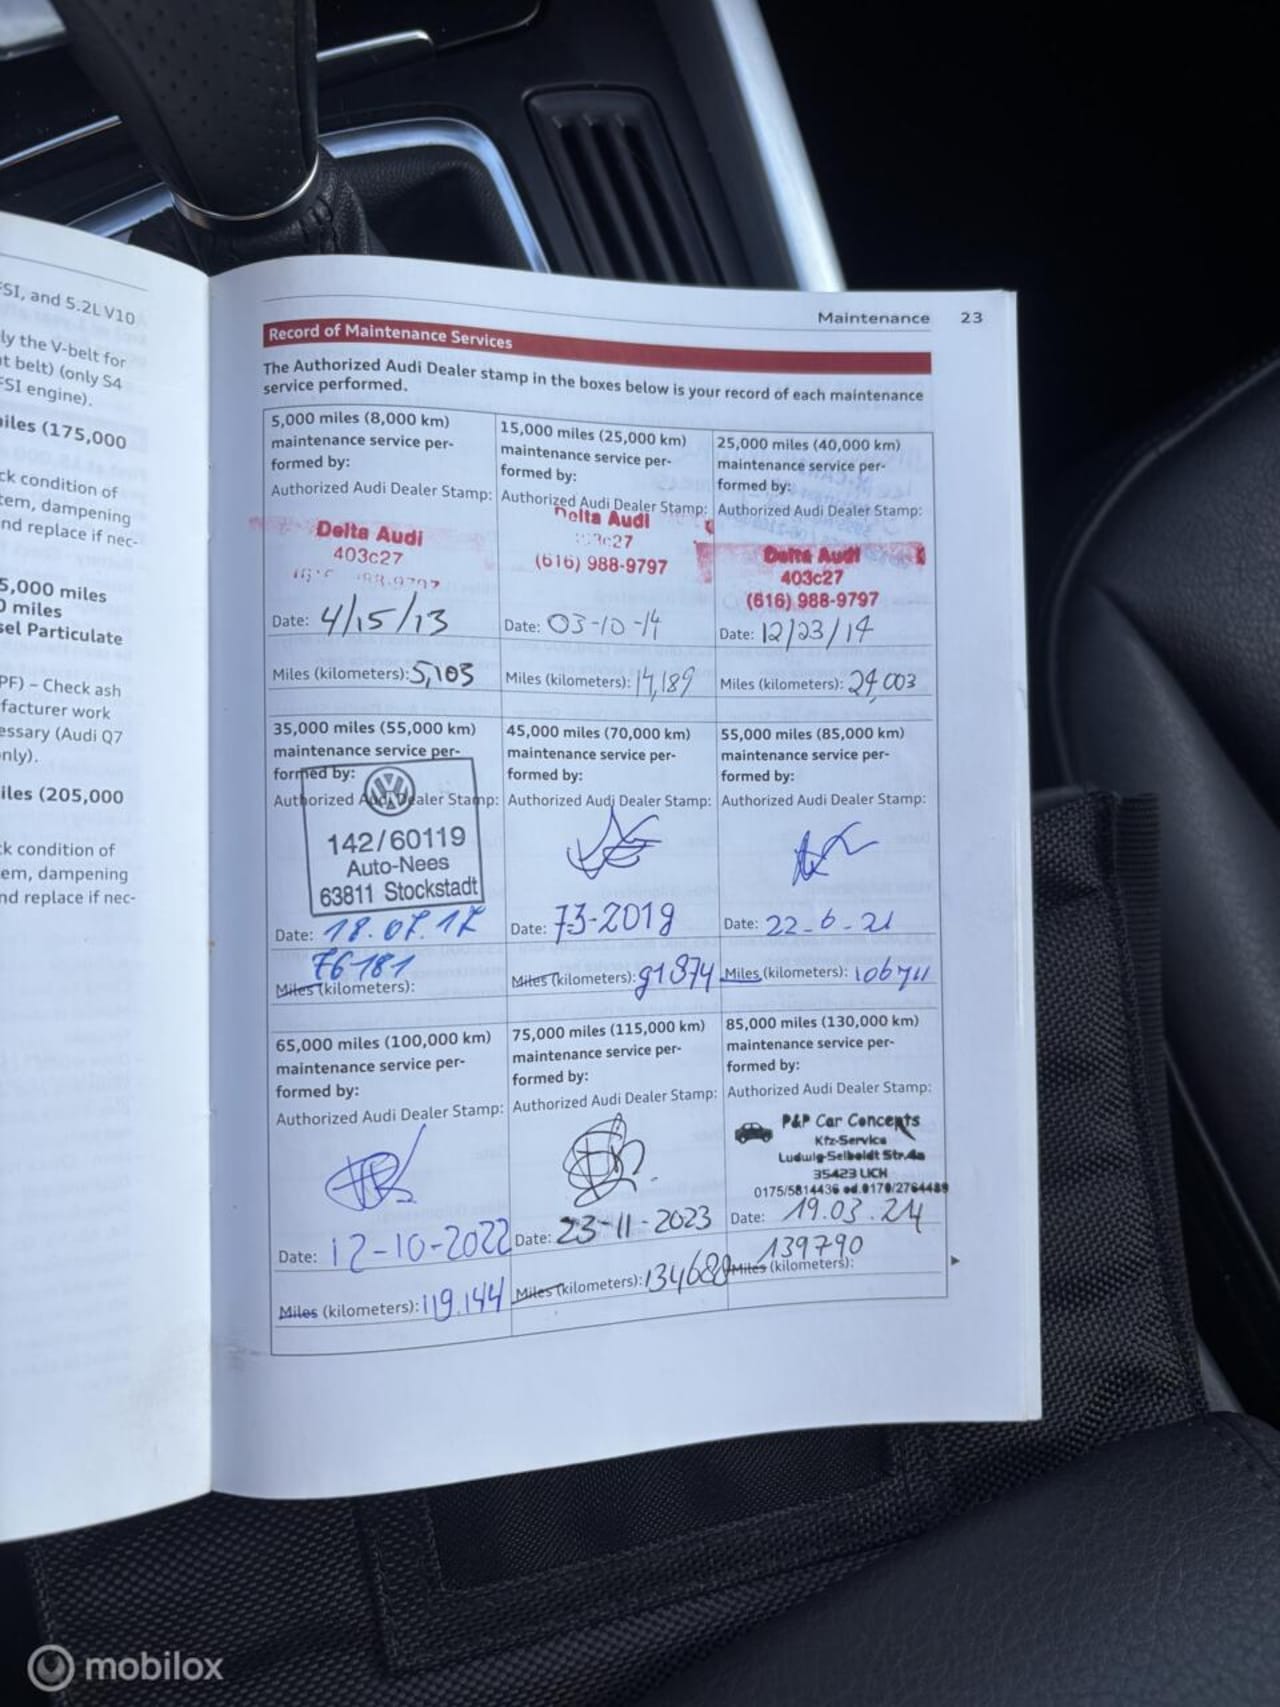 SI, and 5.2L V10
ly the V-belt for
t belt) (only S4
SI engine).
iles (175,000
ck condition of
tem, dampening
nd replace if nec-
5,000 miles
0 miles
sel Particulate
PF) – Check ash
facturer work
essary (Audi Q7
nly).
iles (205,000
k condition of
em, dampening
nd replace if nec-
Maintenance 23
Record of Maintenance Services
The Authorized Audi Dealer stamp in the boxes below is your record of each maintenance
service performed.
5,000 miles (8,000 km)
maintenance service per-
formed by:
Authorized Audi Dealer Stamp:
Delta Audi
403c27
Date: 4/15/13
Miles (kilometers): 5,103
15,000 miles (25,000 km)
maintenance service per-
formed by:
Authorized Audi Dealer Stamp:
Delta Audi
(616) 988-9797
Date: 03-10-14
Miles (kilometers): 14,189
25,000 miles (40,000 km)
maintenance service per-
formed by:
Authorized Audi Dealer Stamp:
Delta Audi
403c27
(616) 988-9797
Date: 12/23/14
Miles (kilometers): 24,003
35,000 miles (55,000 km)
maintenance service per-
formed by:
Authorized Audi Dealer Stamp:
142/60119
Auto-Nees
63811 Stockstadt
Date: 18.07.17
76181
Miles (kilometers):
45,000 miles (70,000 km)
maintenance service per-
formed by:
Authorized Audi Dealer Stamp:
Date: 7-3-2019
Miles (kilometers): 91874
55,000 miles (85,000 km)
maintenance service per-
formed by:
Authorized Audi Dealer Stamp:
Date: 22-6-21
Miles (kilometers): 106711
65,000 miles (100,000 km)
maintenance service per-
formed by:
Authorized Audi Dealer Stamp:
Date: 12-10-2022
Miles (kilometers): 119.144
75,000 miles (115,000 km)
maintenance service per-
formed by:
Authorized Audi Dealer Stamp:
Date: 23-11-2023
Miles (kilometers): 134688
85,000 miles (130,000 km)
maintenance service per-
formed by:
Authorized Audi Dealer Stamp:
P&P Car Concepts
Kfz-Service
Ludwig-Seiboldt Str.4a
35423 LICH
0175/5814436 od.0170/2764489
Date: 19.03.24
139790
Miles (kilometers):
mobilox